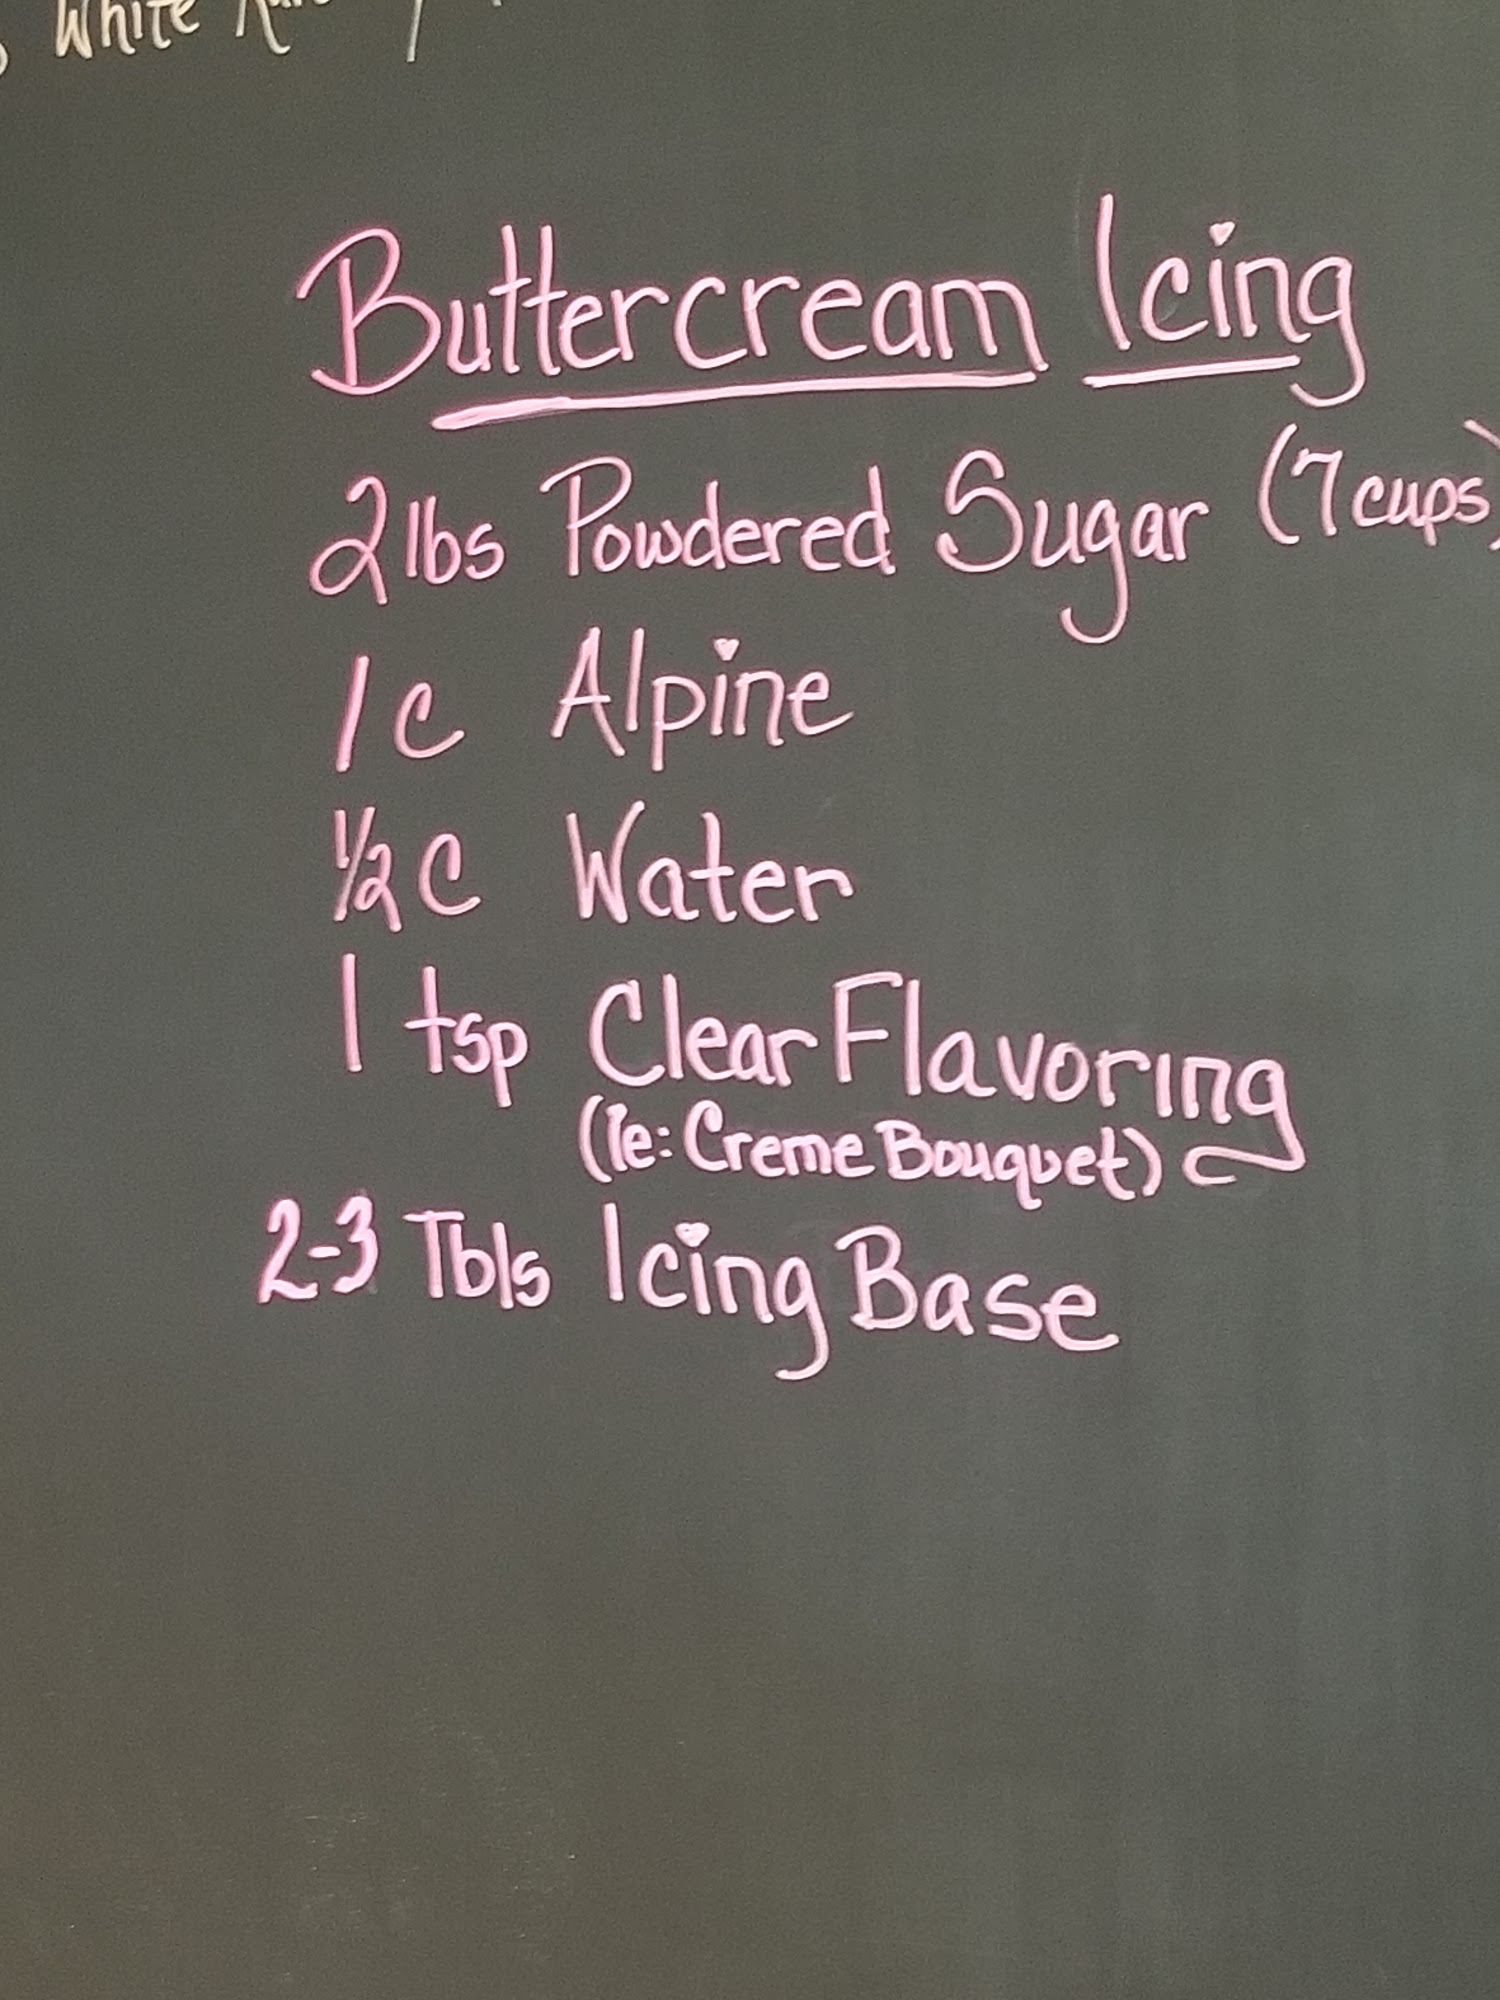 White
Buttercream Icing
2 lbs Powdered Sugar (7 cups)
1 c Alpine
½ c Water
1 tsp Clear Flavoring
(Ie: Creme Bouquet)
2-3 Tbls Icing Base